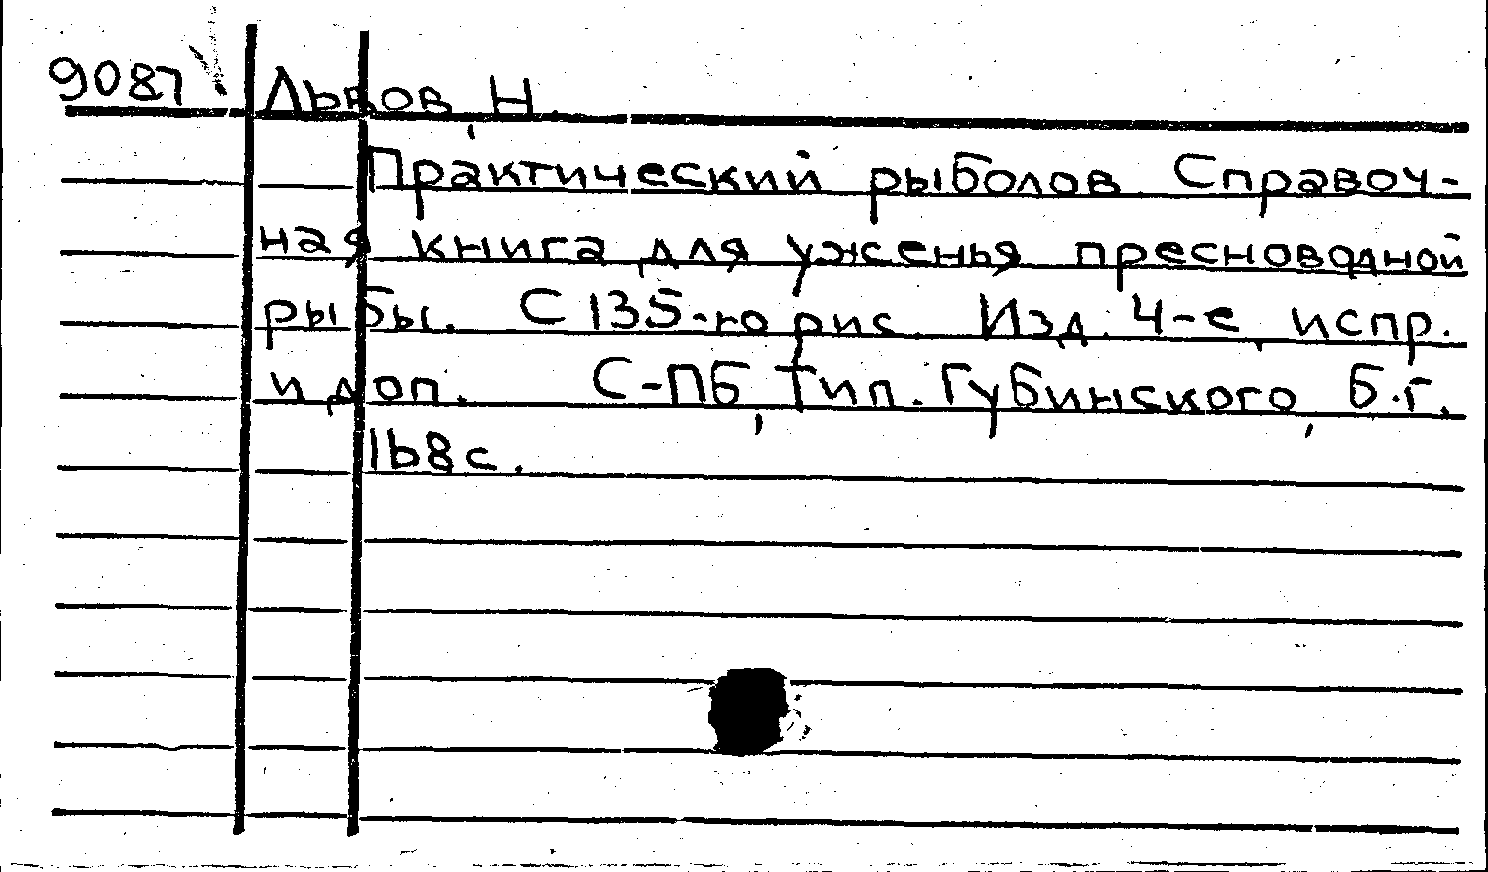 9087 Львов, Н.
Практический рыболов. Справоч-
ная книга для уженья пресноводной
рыбы. С 135-ю рис. Изд. 4-е, испр.
и доп. С-ПБ, Тип. Губинского, Б.г.
168 с.